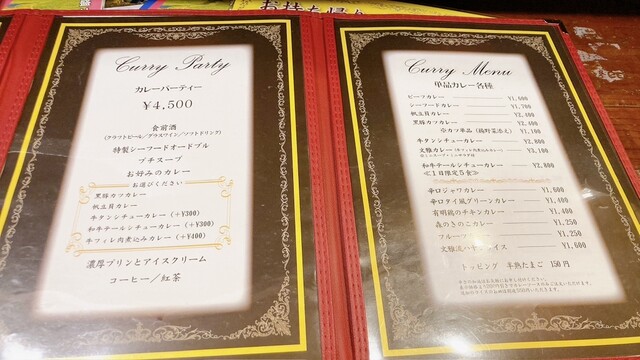 お持ち帰り
Curry Party
カレーパーティー
¥4,500
食前酒
(クラフトビール/グラスワイン/ソフトドリンク)
特製シーフードオードブル
プチスープ
お好みのカレー
お選びください
黒豚カツカレー
帆立貝カレー
牛タンシチューカレー (+¥300)
和牛テールシチューカレー (+¥300)
牛フィレ肉煮込みカレー (+¥400)
濃厚プリンとアイスクリーム
コーヒー/紅茶
Curry Menu
単品カレー各種
ビーフカレー ¥1,600
シーフードカレー ¥1,700
帆立貝カレー ¥2,400
黒豚カツカレー ¥2,400
※カツ単品(温野菜添え) ¥1,100
牛タンシチューカレー ¥2,800
文雅カレー
和牛テールシチューカレー ¥2,800
≪1日限定5食≫
辛口ジャワカレー ¥1,600
辛口タイ風グリーンカレー ¥1,400
有明鶏のチキンカレー ¥1,400
森のきのこカレー ¥1,250
フルーツ ¥1,250
¥1,600
トッピング 半熟たまご 150円